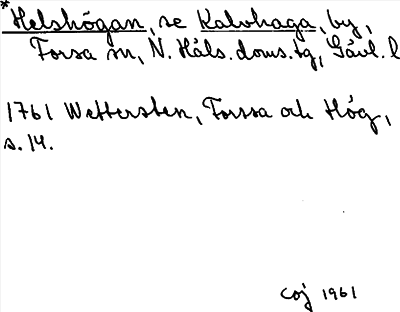 *Helshögan, se Kalvhaga, by,
Forsa sn, N. Häls. doms.tg, Gävl. l
1761 Wettersten, Forssa och Hög,
s. 14.
coj 1961